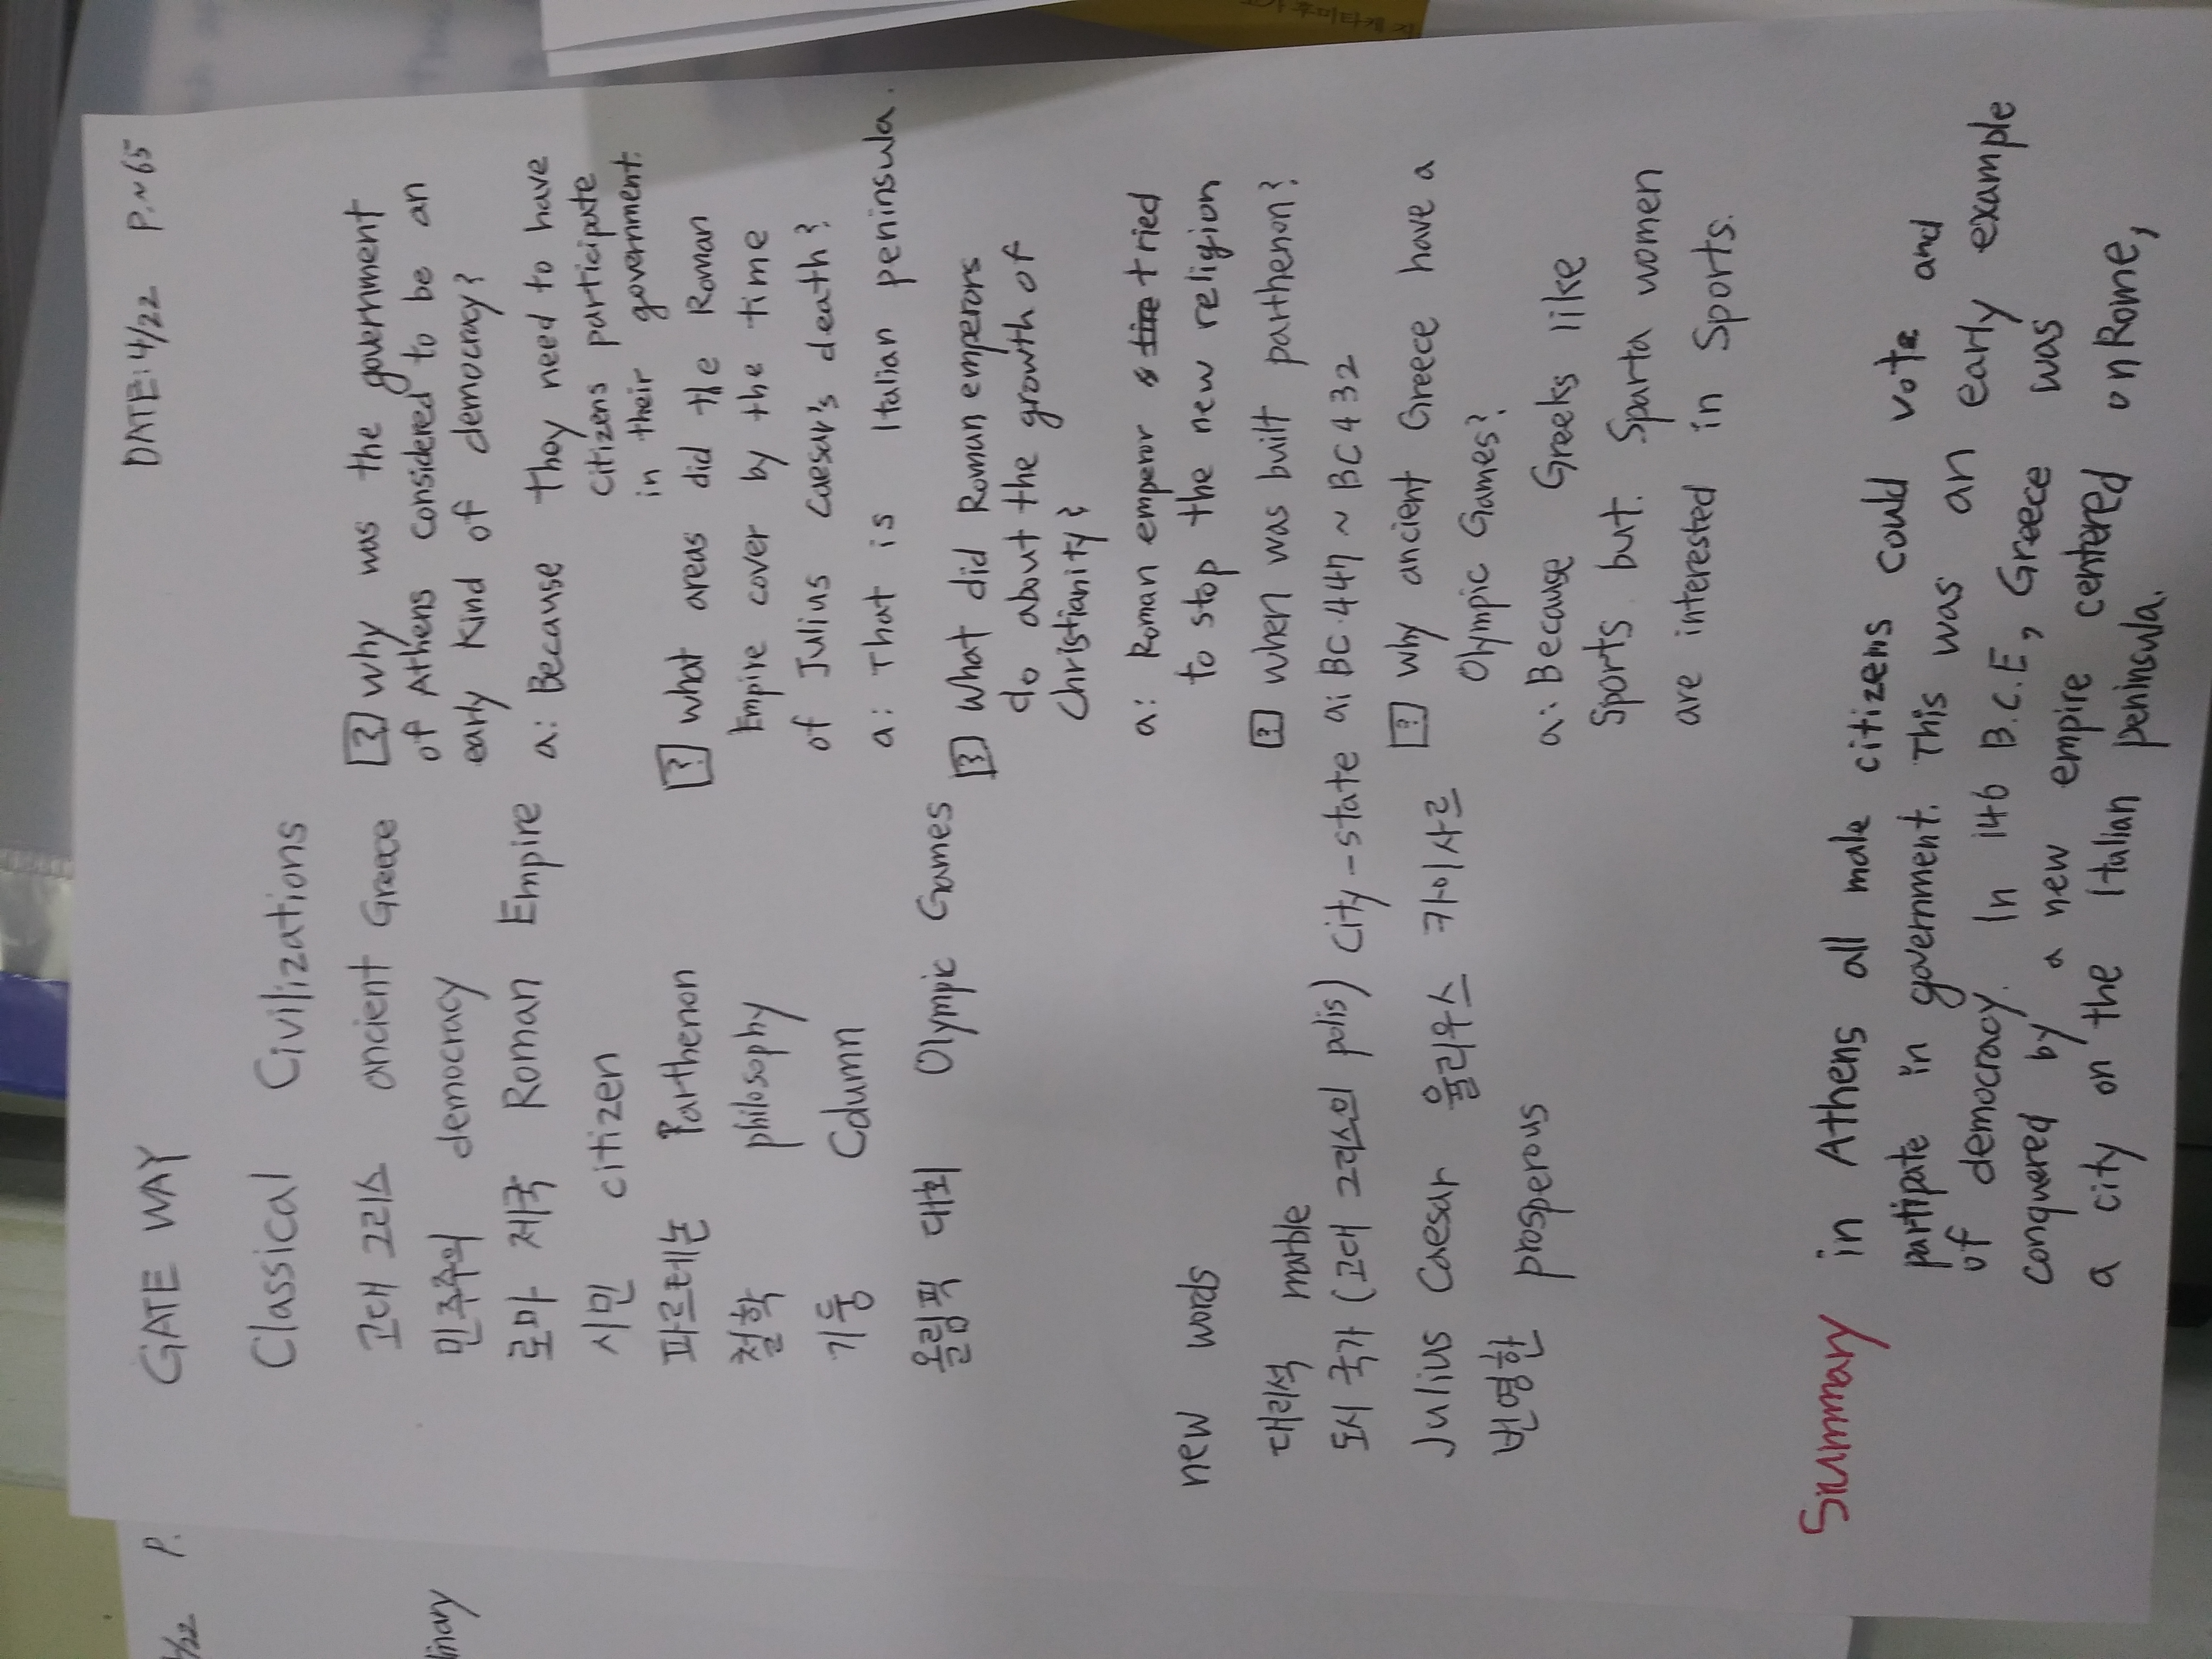 GATE WAY
DATE: 4/22 P.~65
Classical Civilizations
고대 그리스 ancient Greece
민주주의 democracy
로마 제국 Roman Empire
시민 citizen
파르테논 Parthenon
철학 philosophy
기둥 Column
올림픽 대회 Olympic Games
new words
대리석 marble
도시 국가 (고대 그리스의 polis) city-state
Julius Caesar 율리우스 카이사르
번영한 prosperous
? why was the government
of Athens considered to be an
early kind of democracy?
a: Because they need to have
citizens participate
in their government.
? what areas did the Roman
Empire cover by the time
of Julius Caesar's death?
a: That is Italian peninsula.
? What did Roman emperors
do about the growth of
Christianity?
a: Roman emperor tried
to stop the new religion
? when was built parthenon?
a: BC 447 ~ BC 432
? why ancient Greece have a
Olympic Games?
a: Because Greeks like
Sports but. Sparta women
are interested in Sports.
Summary in Athens all male citizens could vote and
partipate in government. This was an early example
of democracy. In 146 B.C.E, Greece was
conquered by a new empire centered onRome,
a city on the Italian peninsula.
1/22 P.
linary